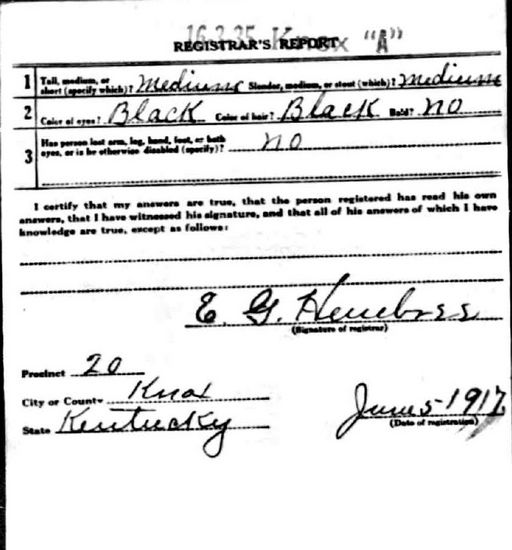 16.3.35 Knox "A"
REGISTRAR'S REPORT
1 Tall, medium, or short (specify which)? Medium Slender, medium, or stout (which)? medium
2 Color of eyes? Black Color of hair? Black Bald? NO
3 Has person lost arm, leg, hand, foot, or both eyes, or is he otherwise disabled (specify)? no
I certify that my answers are true, that the person registered has read his own
answers, that I have witnessed his signature, and that all of his answers of which I have
knowledge are true, except as follows:
E. G.
(Signature of registrar)
Precinct 20
City or County Knox
State Kentucky
June 5-1917
(Date of registration)